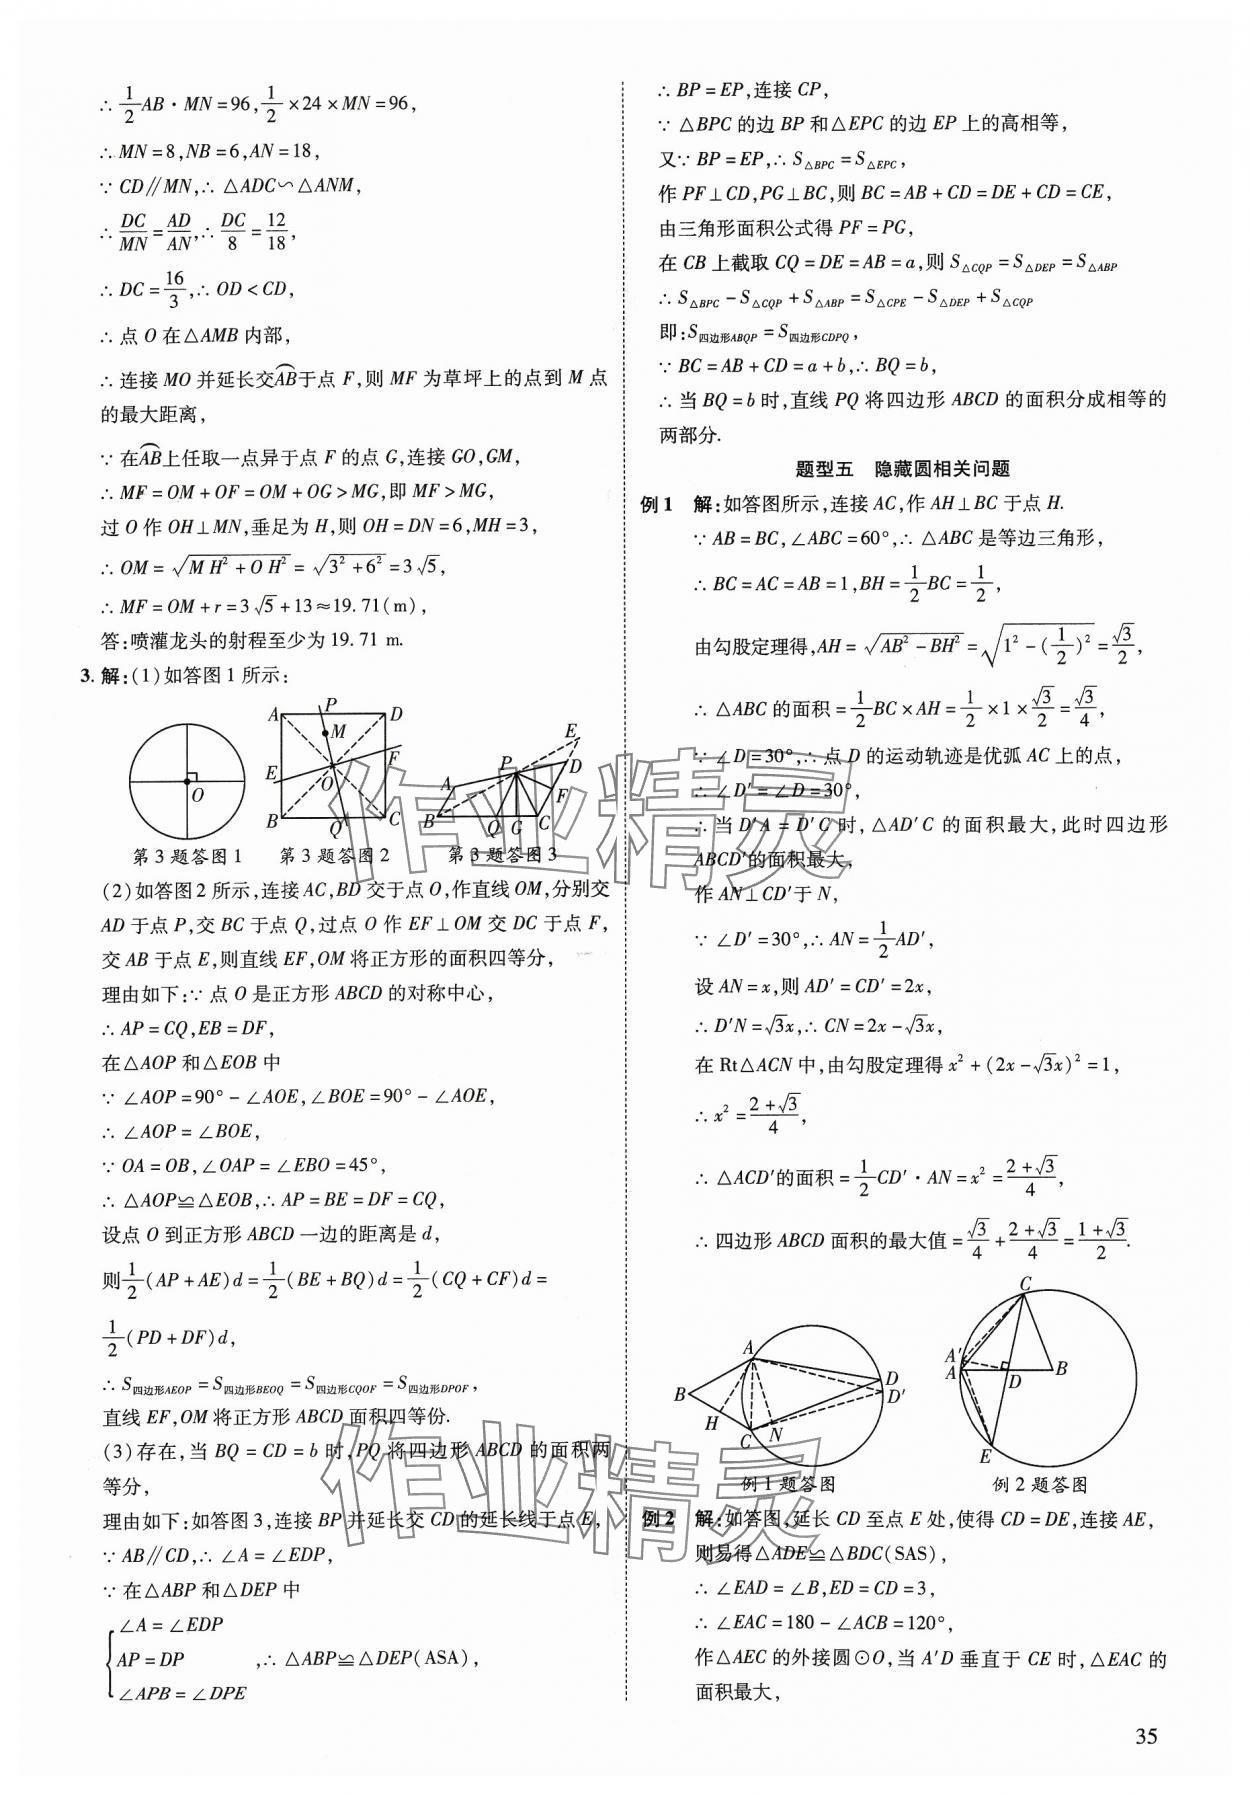 ∴ 1/2 AB·MN=96, 1/2×24×MN=96,
∴ MN=8,NB=6,AN=18,
∵ CD∥MN,∴ △ADC∽△ANM,
∴ DC/MN=AD/AN,∴ DC/8=12/18,
∴ DC=16/3,∴ OD<CD,
∴ 点 O 在△AMB 内部,
∴ 连接 MO 并延长交⌒AB于点 F,则 MF 为草坪上的点到 M 点
的最大距离,
∵ 在⌒AB上任取一点异于点 F 的点 G,连接 GO,GM,
∴ MF=OM+OF=OM+OG>MG,即 MF>MG,
过 O 作 OH⊥MN,垂足为 H,则 OH=DN=6,MH=3,
∴ OM=√(MH²+OH²)=√(3²+6²)=3√5,
∴ MF=OM+r=3√5+13≈19.71(m),
答:喷灌龙头的射程至少为 19.71 m.
3. 解:(1)如答图 1 所示:
O
A P D M E F O B Q C
E P D A F B Q G C
第 3 题答图 1 第 3 题答图 2 第 3 题答图 3
(2)如答图 2 所示,连接 AC,BD 交于点 O,作直线 OM,分别交
AD 于点 P,交 BC 于点 Q,过点 O 作 EF⊥OM 交 DC 于点 F,
交 AB 于点 E,则直线 EF,OM 将正方形的面积四等分,
理由如下:∵ 点 O 是正方形 ABCD 的对称中心,
∴ AP=CQ,EB=DF,
在△AOP 和△EOB 中
∵ ∠AOP=90°-∠AOE,∠BOE=90°-∠AOE,
∴ ∠AOP=∠BOE,
∵ OA=OB,∠OAP=∠EBO=45°,
∴ △AOP≌△EOB,∴ AP=BE=DF=CQ,
设点 O 到正方形 ABCD 一边的距离是 d,
则 1/2(AP+AE)d=1/2(BE+BQ)d=1/2(CQ+CF)d=
1/2(PD+DF)d,
∴ S四边形AEOP=S四边形BEOQ=S四边形CQOF=S四边形DPOF,
直线 EF,OM 将正方形 ABCD 面积四等份.
(3)存在,当 BQ=CD=b 时,PQ 将四边形 ABCD 的面积两
等分,
理由如下:如答图 3,连接 BP 并延长交 CD 的延长线于点 E,
∵ AB∥CD,∴ ∠A=∠EDP,
∵ 在△ABP 和△DEP 中
∠A=∠EDP
AP=DP ,∴ △ABP≌△DEP(ASA),
∠APB=∠DPE
∴ BP=EP,连接 CP,
∵ △BPC 的边 BP 和△EPC 的边 EP 上的高相等,
又∵ BP=EP,∴ S△BPC=S△EPC,
作 PF⊥CD,PG⊥BC,则 BC=AB+CD=DE+CD=CE,
由三角形面积公式得 PF=PG,
在 CB 上截取 CQ=DE=AB=a,则 S△CQP=S△DEP=S△ABP
∴ S△BPC-S△CQP+S△ABP=S△CPE-S△DEP+S△CQP
即:S四边形ABQP=S四边形CDPQ,
∵ BC=AB+CD=a+b,∴ BQ=b,
∴ 当 BQ=b 时,直线 PQ 将四边形 ABCD 的面积分成相等的
两部分.
题型五 隐藏圆相关问题
例 1 解:如答图所示,连接 AC,作 AH⊥BC 于点 H.
∵ AB=BC,∠ABC=60°,∴ △ABC 是等边三角形,
∴ BC=AC=AB=1,BH=1/2 BC=1/2,
由勾股定理得,AH=√(AB²-BH²)=√(1²-(1/2)²)=√3/2,
∴ △ABC 的面积=1/2 BC×AH=1/2×1×√3/2=√3/4,
∵ ∠D=30°,∴ 点 D 的运动轨迹是优弧 AC 上的点,
∴ ∠D'=∠D=30°,
∴ 当 D'A=D'C 时,△AD'C 的面积最大,此时四边形
ABCD'的面积最大,
作 AN⊥CD'于 N,
∵ ∠D'=30°,∴ AN=1/2 AD',
设 AN=x,则 AD'=CD'=2x,
∴ D'N=√3x,∴ CN=2x-√3x,
在 Rt△ACN 中,由勾股定理得 x²+(2x-√3x)²=1,
∴ x²=(2+√3)/4,
∴ △ACD'的面积=1/2 CD'·AN=x²=(2+√3)/4,
∴ 四边形 ABCD 面积的最大值=√3/4+(2+√3)/4=(1+√3)/2.
A B D D' H C N
C A' A D B E
例 1 题答图 例 2 题答图
例 2 解:如答图,延长 CD 至点 E 处,使得 CD=DE,连接 AE,
则易得△ADE≌△BDC(SAS),
∴ ∠EAD=∠B,ED=CD=3,
∴ ∠EAC=180-∠ACB=120°,
作△AEC 的外接圆⊙O,当 A'D 垂直于 CE 时,△EAC 的
面积最大,
35
作业精灵
作业精灵